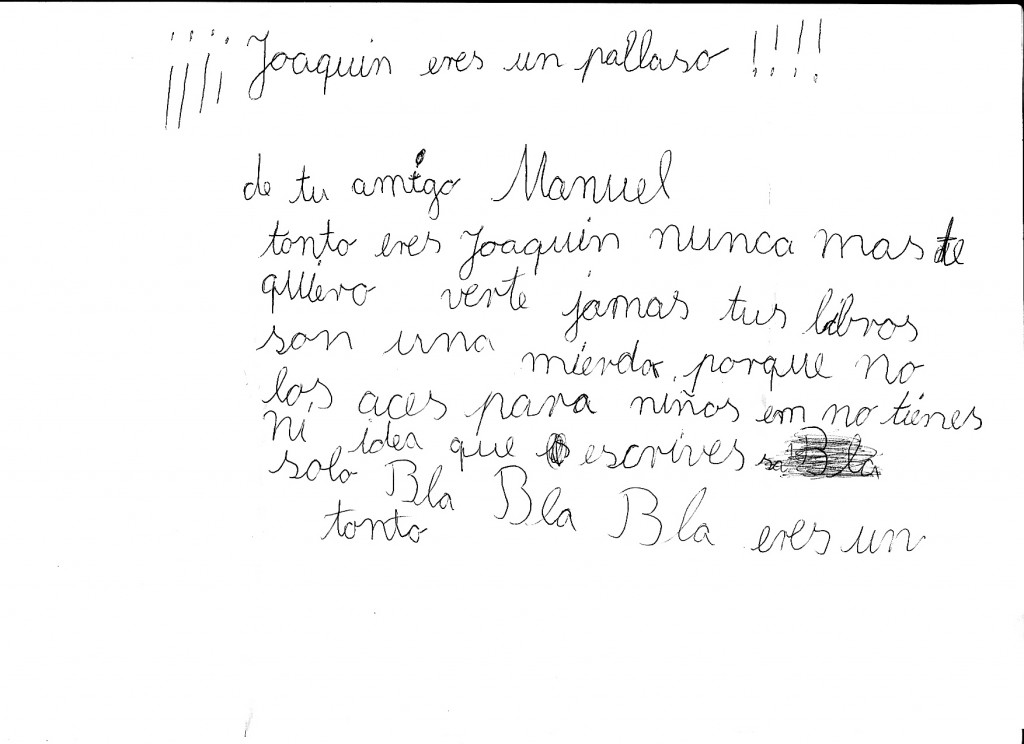 ¡¡¡¡ Joaquin eres un pallaso !!!!
de tu amigo Manuel
tonto eres Joaquin nunca mas te
quiero verte jamas tus libros
son una mierda, porque no
los aces para niños em no tienes
ni idea que escrives
solo Bla Bla Bla eres un
tonto